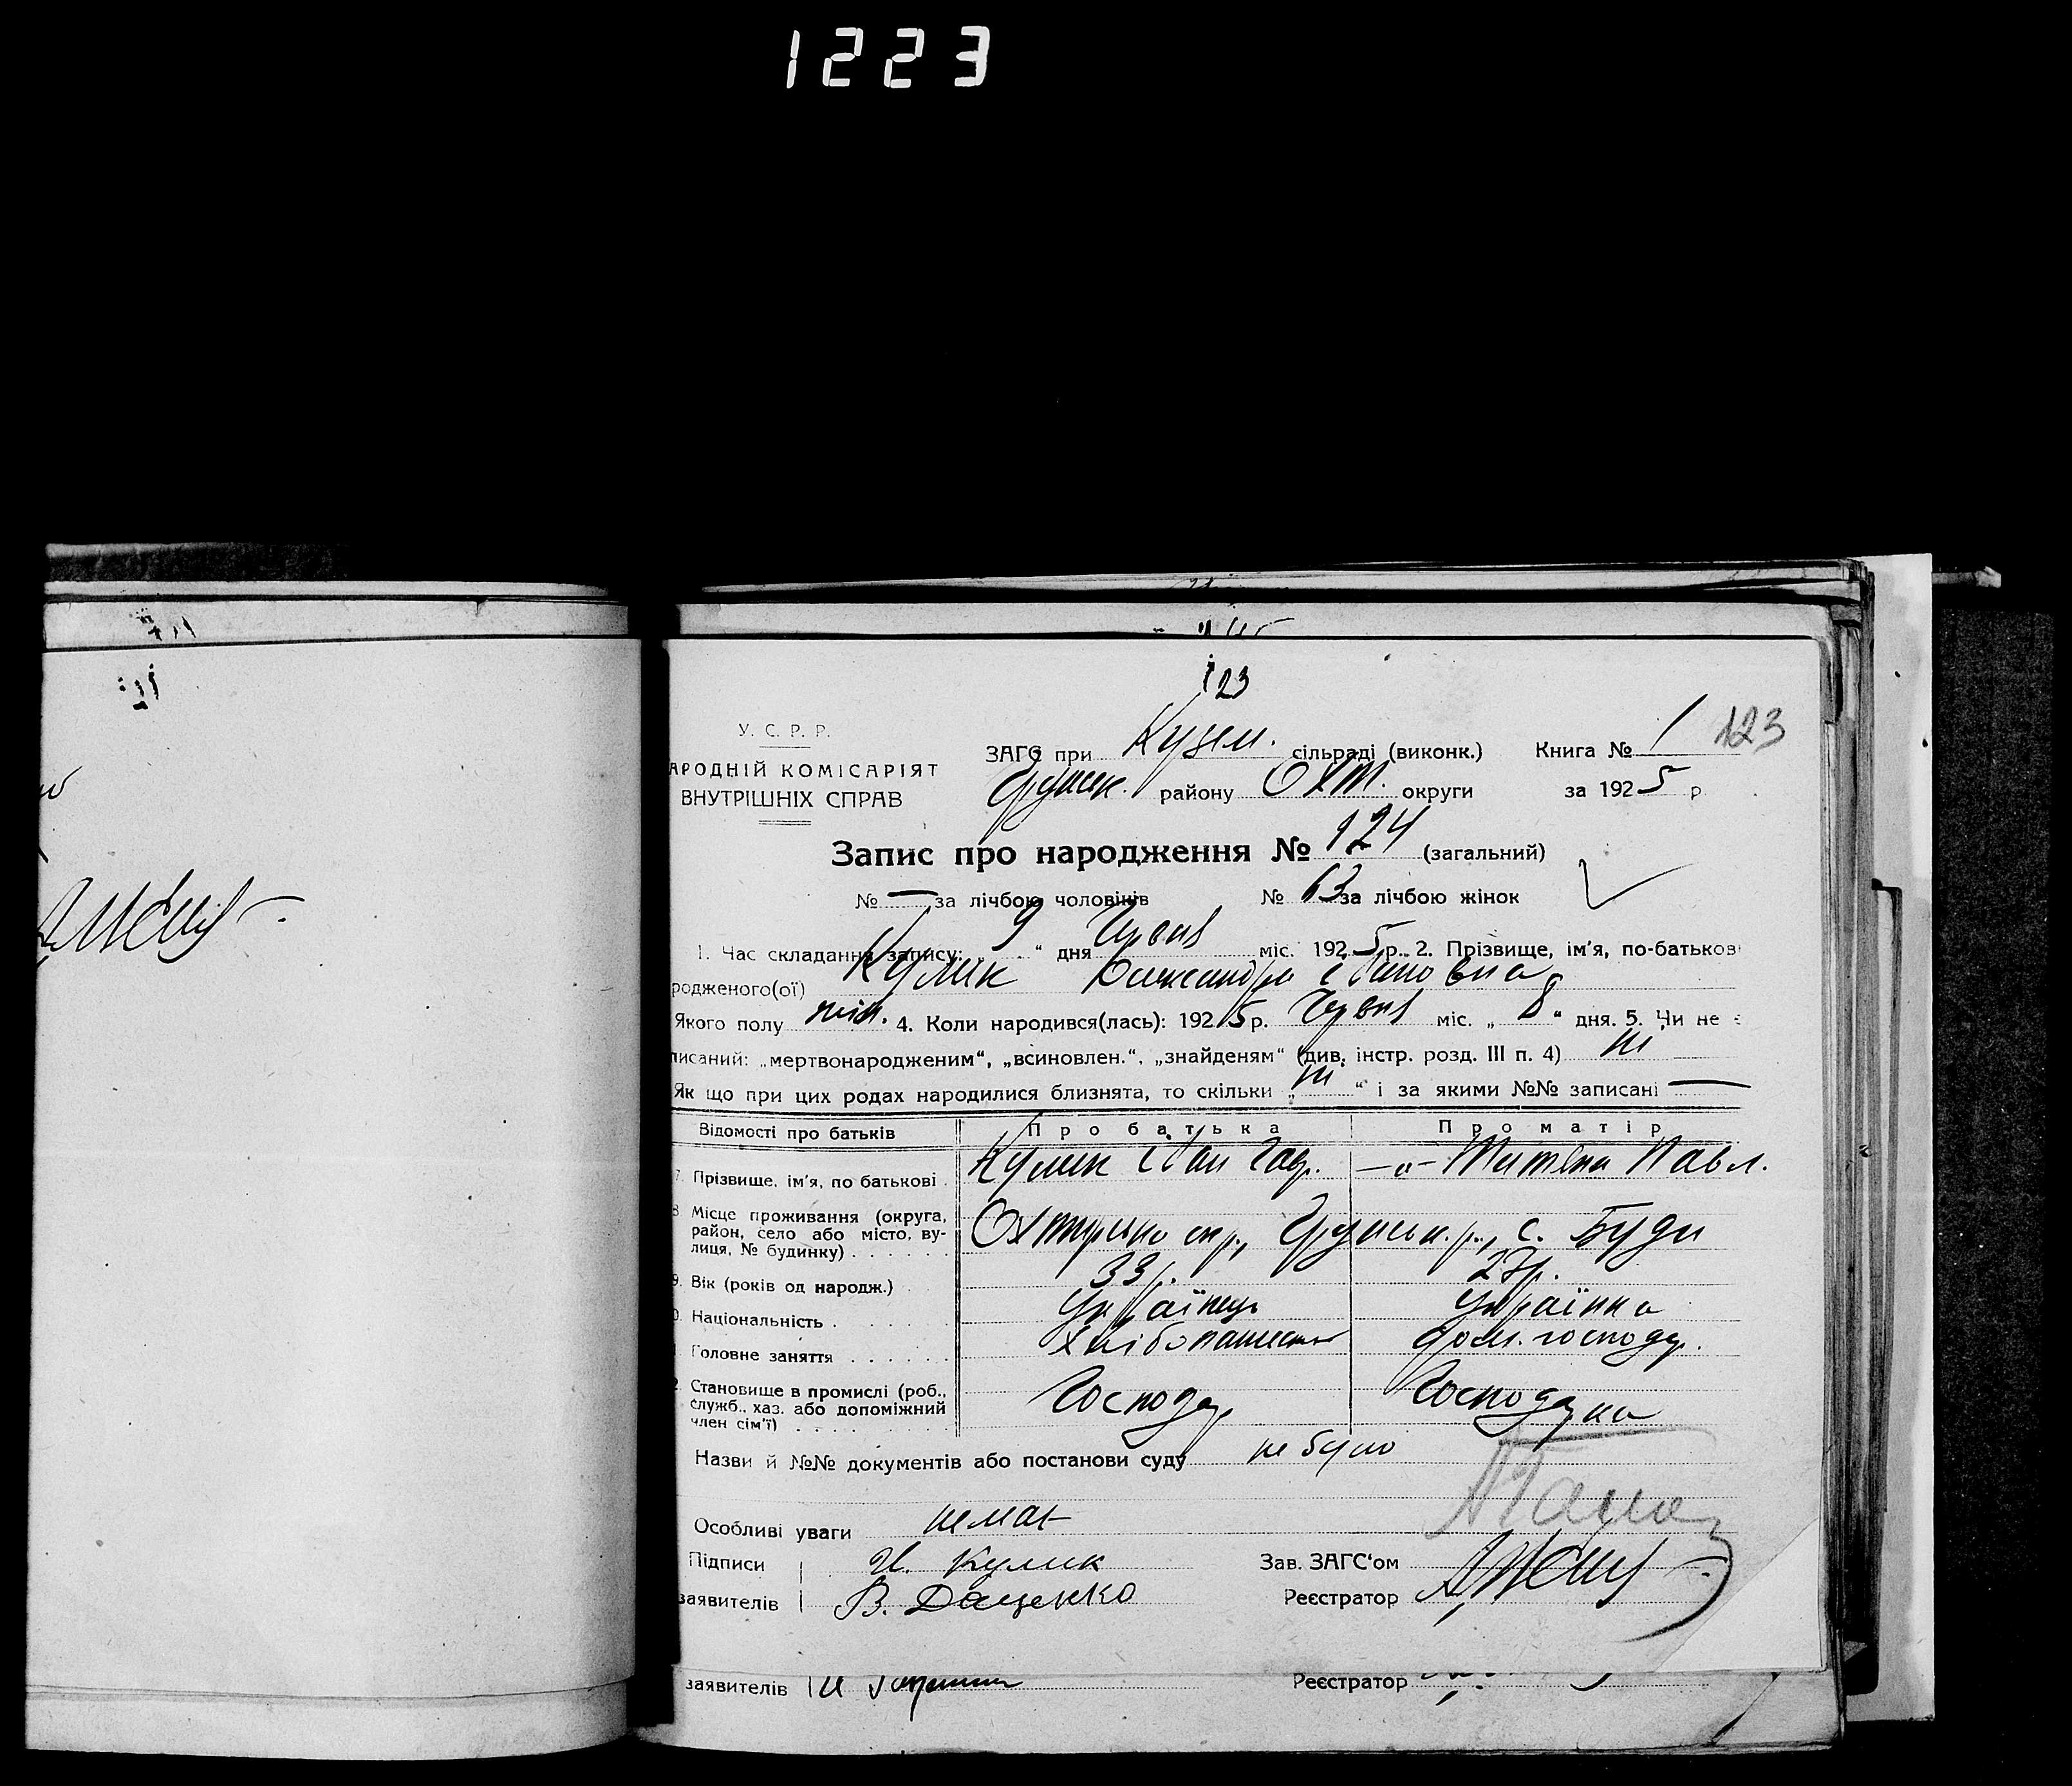 1223
123
У. С. Р. Р.
АРОДНІЙ КОМІСАРІЯТ
ВНУТРІШНІХ СПРАВ
ЗАГС при Кузем. сільраді (виконк.) Книга № 1 123
Грунськ. району ОХТ. округи за 1925 р
Запис про народження № 124 (загальний)
№ — за лічбою чоловіків № 63 за лічбою жінок
1. Час складання запису: 9 " дня Червня міс. 1925 р. 2. Прізвище, ім'я, по-батькові
родженого(ої) Кулик Олександра Івановна
Якого полу жін. 4. Коли народився(лась): 1925 р. Червня міс. „ 8 " дня. 5. Чи не є
писаний: „мертвонародженим“, „всиновлен.“, „знайденям“ (див. інстр. розд. III п. 4) ні
Як що при цих родах народилися близнята, то скільки „ ні “ і за якими №№ записані —
Відомості про батьків Про батька Про матір
7. Прізвище, ім'я, по батькові Кулик Іван Гаф. —„— Титяна Павл.
8 Місце проживання (округа, район, село або місто, вулиця, № будинку) Охтирська окр., Грунськ. р., с. Буди
9. Вік (років од народж.) 33 р. 27 р.
0. Національність Українець Українка
1. Головне заняття Хлібопашество дом. господар.
2 Становище в промислі (роб., служб., хаз. або допоміжний член сім'ї) Господар Господарка
Назви й №№ документів або постанови суду не було
Особливі уваги немає
Підписи И. Кулик Зав. ЗАГС'ом
заявителів В. Даценко Реєстратор
заявителів Реєстратор